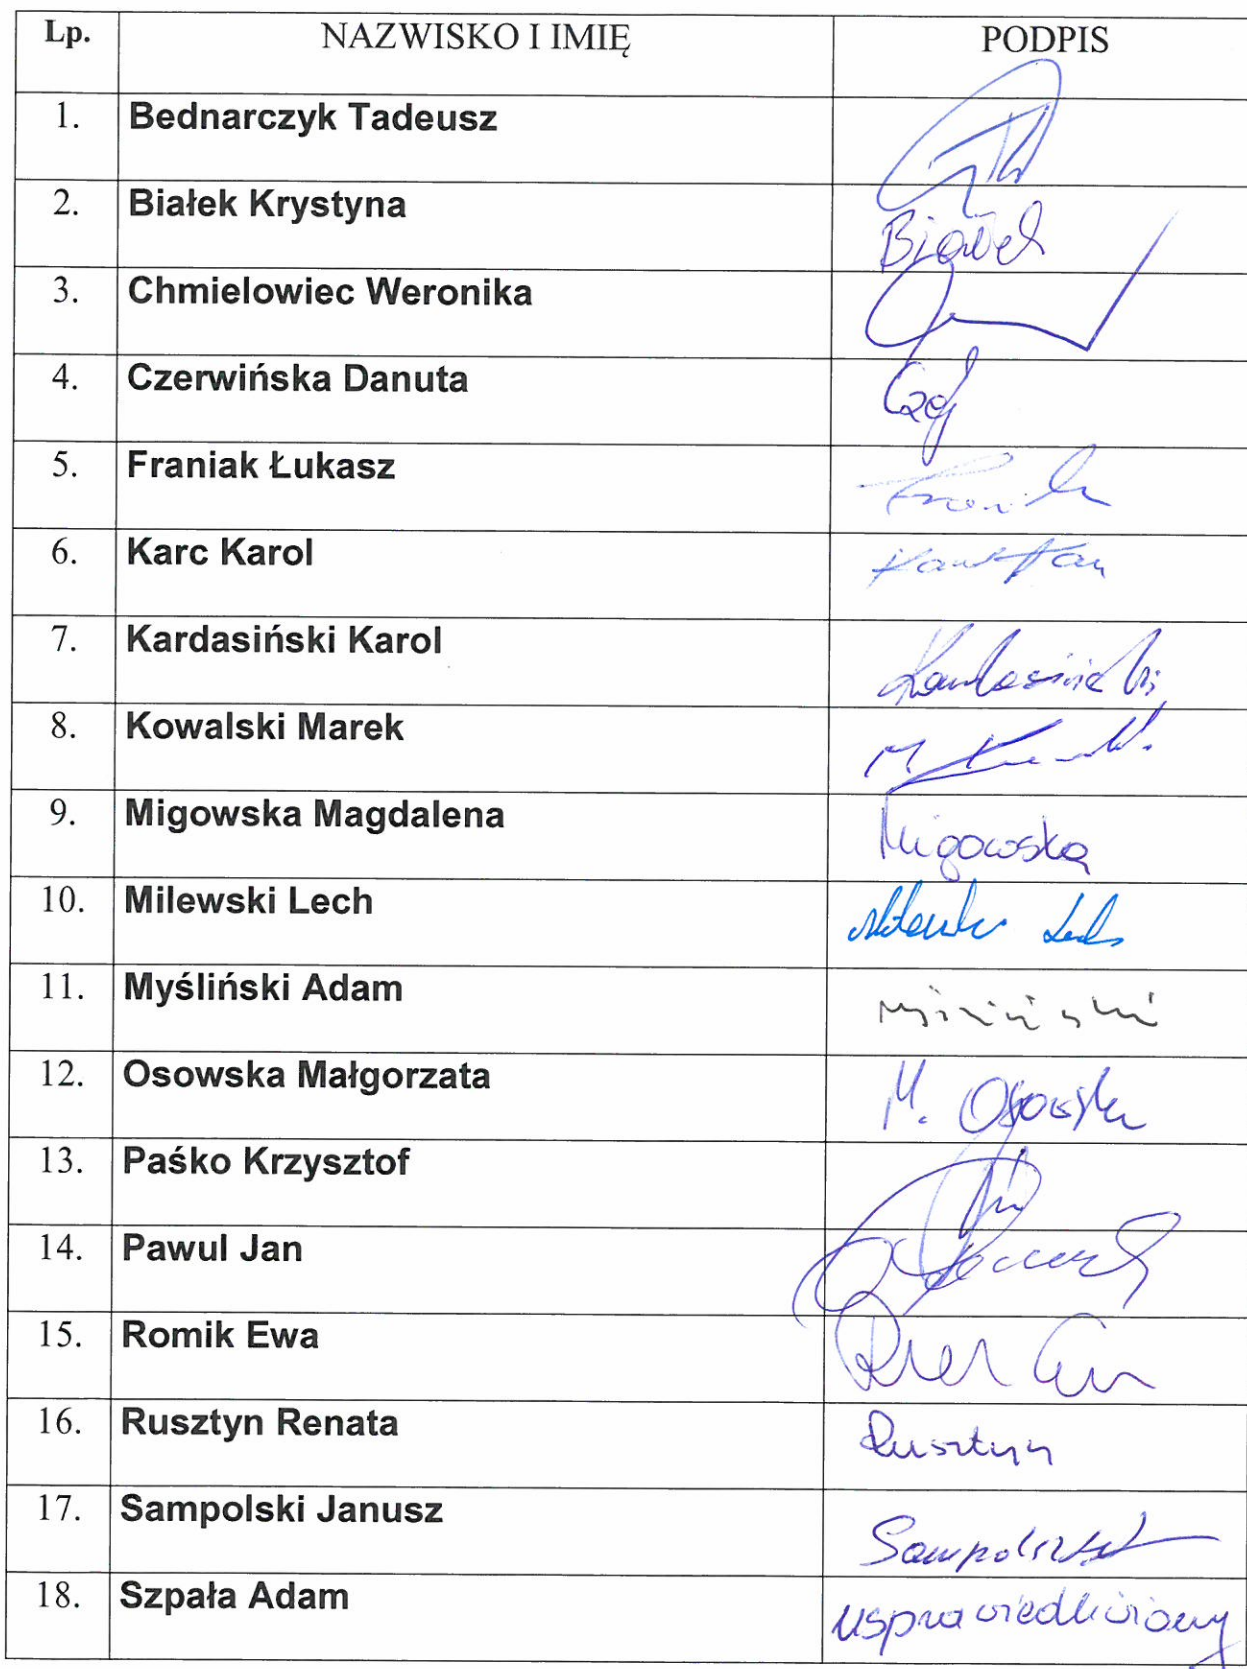 Lp. NAZWISKO I IMIĘ PODPIS
1. Bednarczyk Tadeusz
2. Białek Krystyna Białek
3. Chmielowiec Weronika
4. Czerwińska Danuta
5. Franiak Łukasz
6. Karc Karol
7. Kardasiński Karol Kardasiński
8. Kowalski Marek M.
9. Migowska Magdalena Migowska
10. Milewski Lech Lech
11. Myśliński Adam Myśliński
12. Osowska Małgorzata M. Osowska
13. Paśko Krzysztof
14. Pawul Jan
15. Romik Ewa
16. Rusztyn Renata Rusztyn
17. Sampolski Janusz Sampolski
18. Szpała Adam usprawiedliwiony